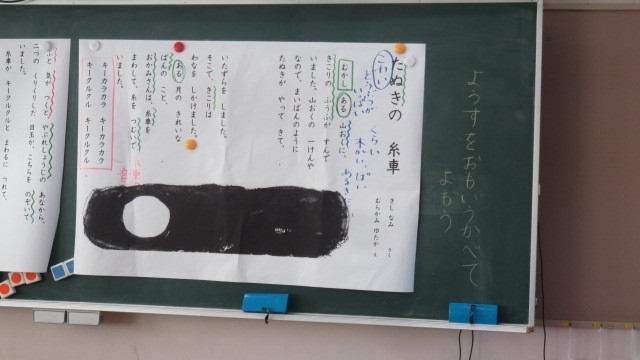 ようすをおもいうかべて
よもう
たぬきの 糸車
きし なみ さく
むらかみ ゆたか え
こわい
くらい
むかし、ある 山おくに、
きこりの ふうふが すんで
いました。山おくの 一けんや
なので、まいばんのように
たぬきが やって きて、
いたずらを しました。
そこで、きこりは
わなを しかけました。
ある 月の きれいな
ばんの こと、
おかみさんは、糸車を
まわして、糸を つむいで
いました。
キーカラカラ キーカラカラ
キークルクル キークルクル
ふと 気が つくと、やぶれしょうじの
あなから、
二つの くりくりした 目玉が、こちらを
のぞいて
いました。
糸車が キークルクルと まわるに つれて、